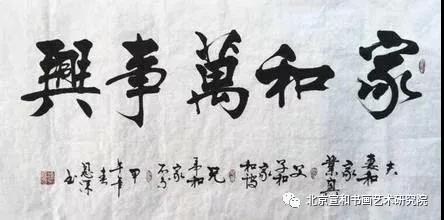 家和萬事興
夫妻和家業興父子和家兄弟和家不分
甲午年春
北京宣和书画艺术研究院